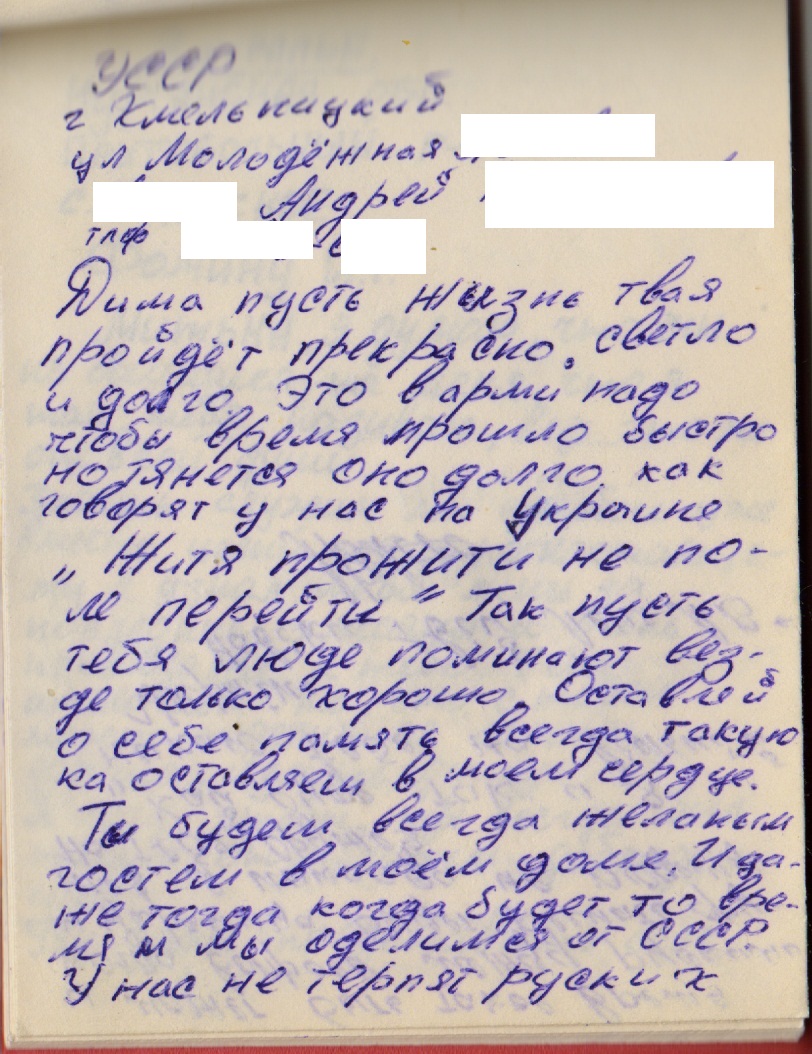 УССР
г Хмельницкий
ул Молодёжная
Андрей
тлф
Дима пусть жызнь твая
пройдёт прекрасно, светло
и долго. Это в арми надо
чтобы время прошло быстро
но тянется оно долго. как
говорят у нас на Украине
„ Житя прожити не по-
ле перейти " Так пусть
тебя люде поминают вез-
де только хорошо. Оставляй
о себе память всегда такую
ка оставляеш в моем сердце.
Ты будеш всегда желаным
гостем в моём доме. И да-
же тогда когда будет то вре-
мя и мы оделимся от СССР
У нас не терпят руских